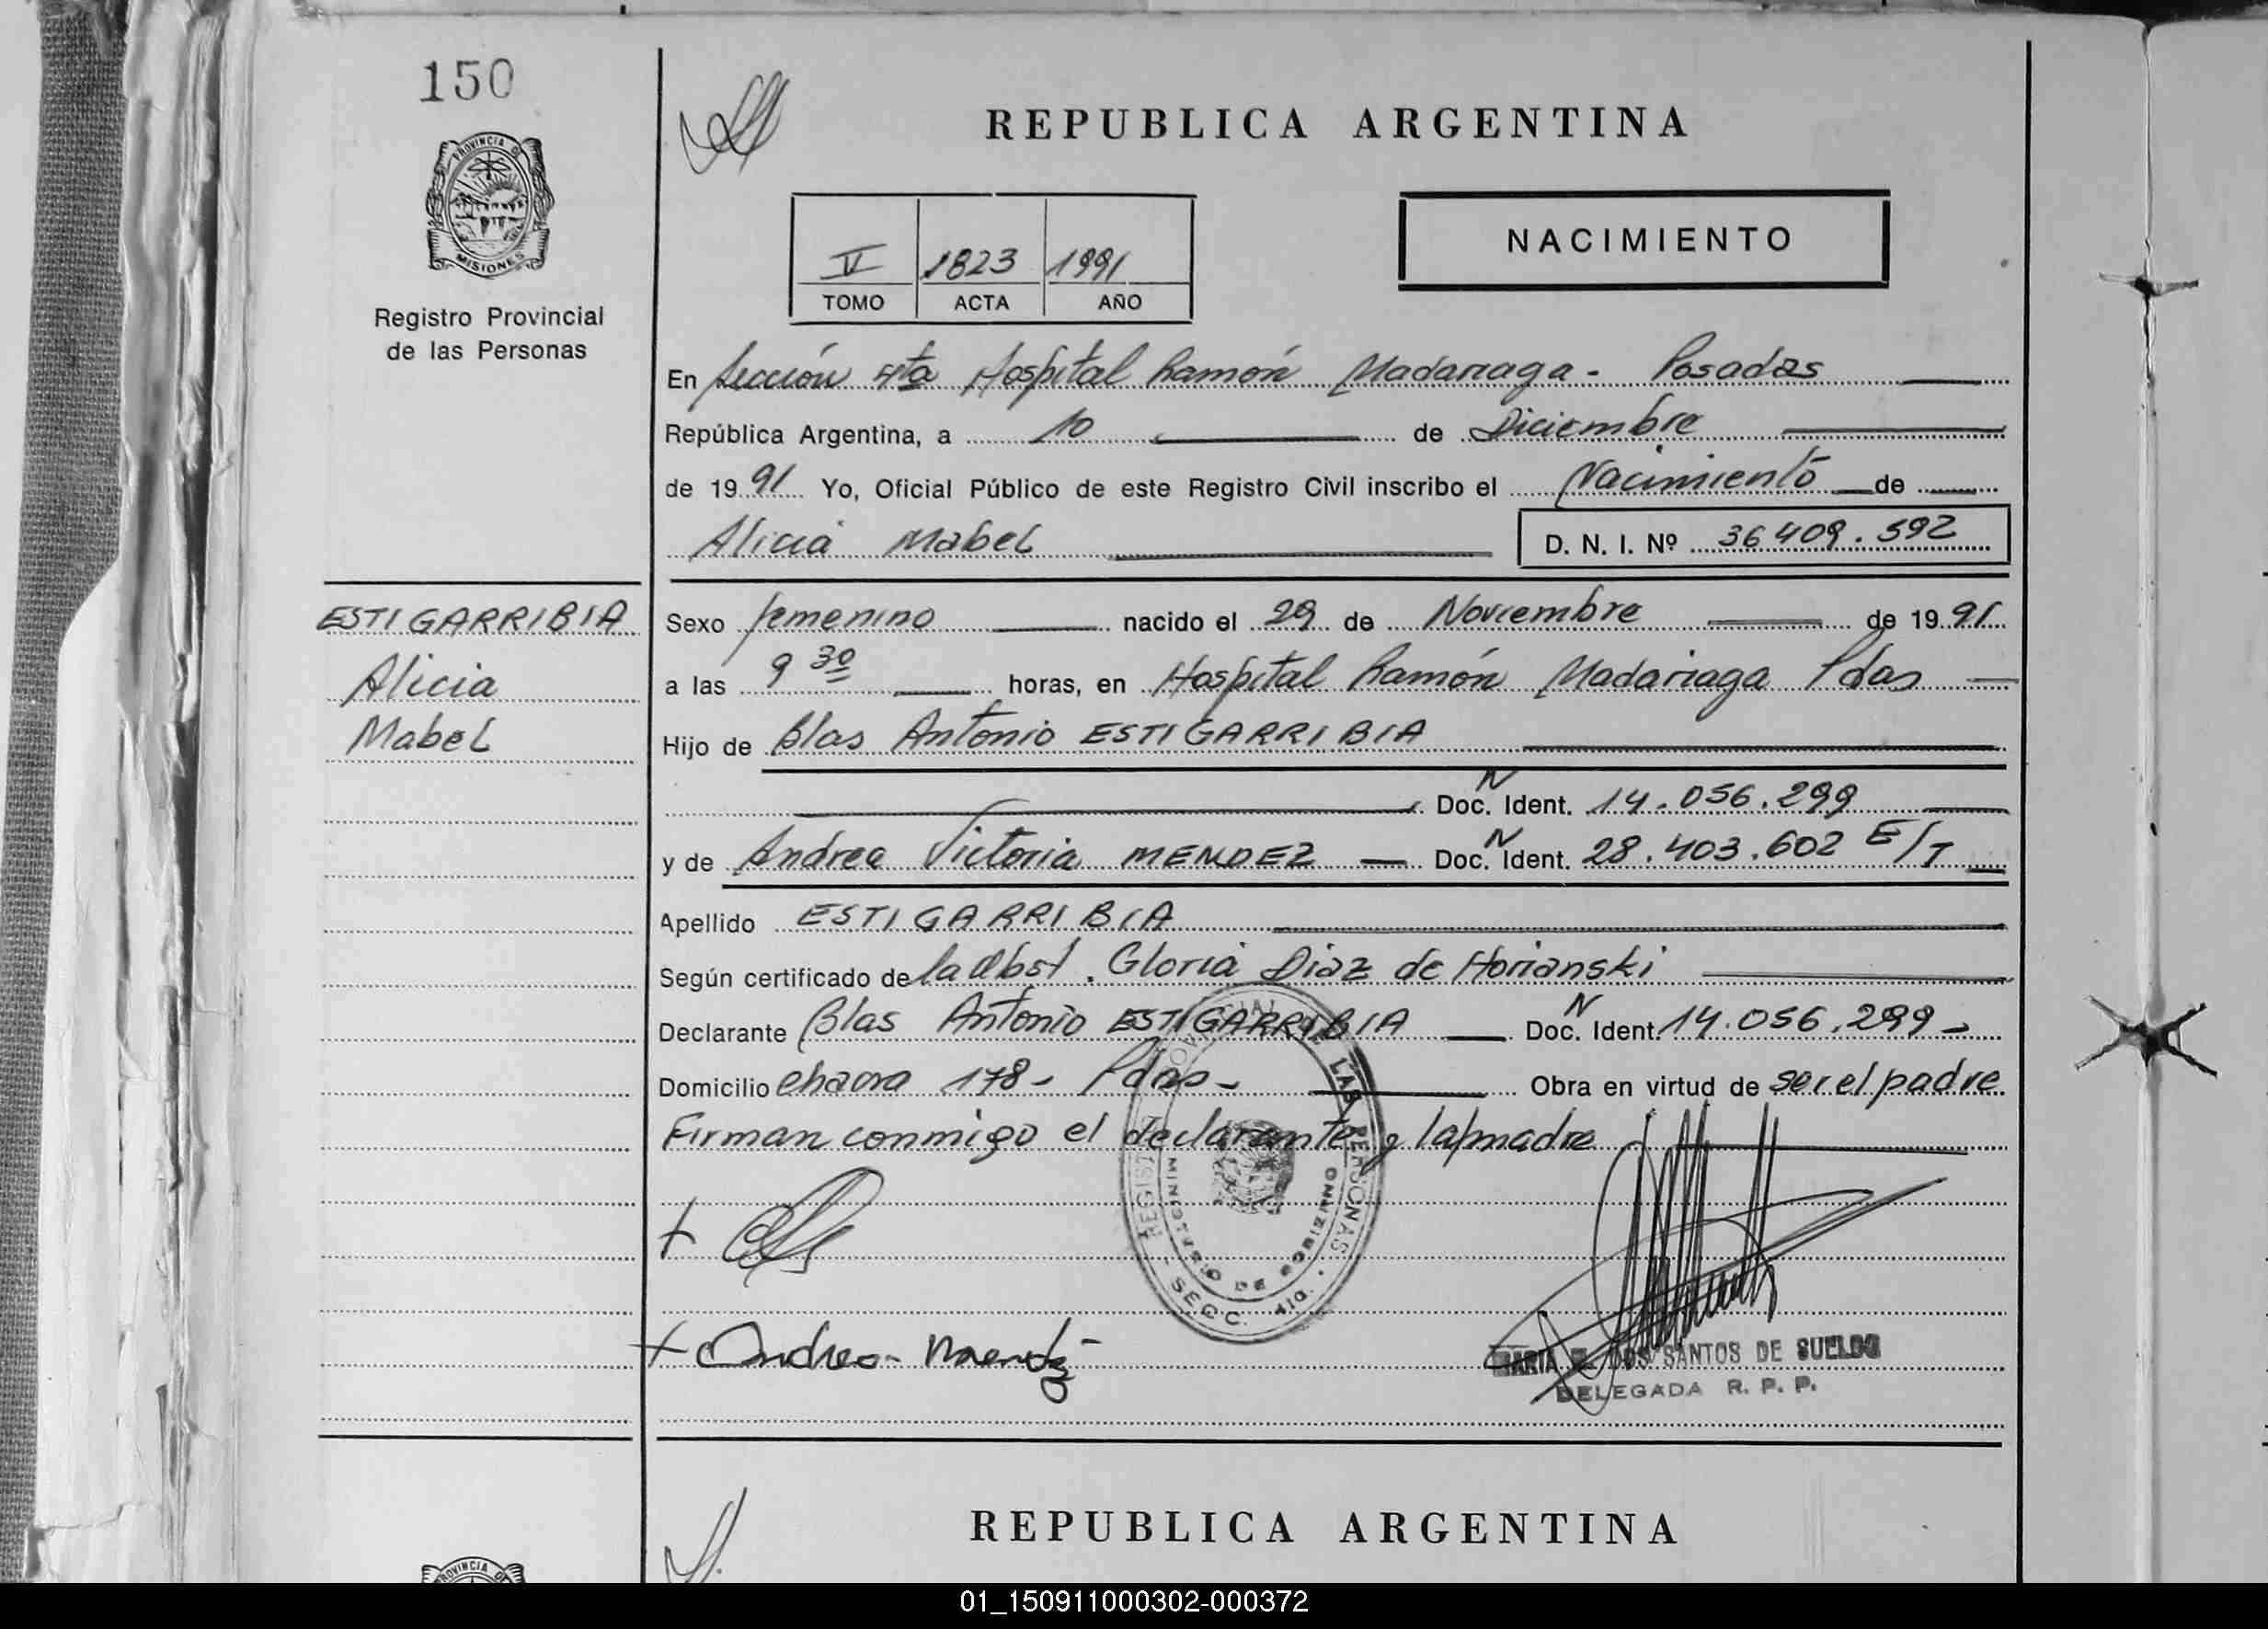 150
PROVINCIA DE
MISIONES
Registro Provincial
de las Personas
REPUBLICA ARGENTINA
V 1823 1991
TOMO ACTA AÑO
NACIMIENTO
En Sección 4ta Hospital Ramón Madariaga - Posadas
República Argentina, a 10 de Diciembre
de 1991 Yo, Oficial Público de este Registro Civil inscribo el Nacimiento de
Alicia Mabel D. N. I. Nº 36409.592
ESTIGARRIBIA
Alicia
Mabel
Sexo femenino nacido el 29 de Noviembre de 1991
a las 9 30 horas, en Hospital Ramón Madariaga Pdas
Hijo de Blas Antonio ESTIGARRIBIA
N
Doc. Ident. 14.056.299
N
y de Andrea Victoria MENDEZ Doc. Ident. 28.403.602 E/T
Apellido ESTIGARRIBIA
Según certificado de la Obst. Gloria Diaz de Horianski
N
Declarante Blas Antonio ESTIGARRIBIA Doc. Ident. 14.056.299-
Domicilio chacra 178- Pdas- Obra en virtud de ser el padre
Firman conmigo el declarante y la madre
DE LAS PERSONAS
MINISTERIO DE GOBIERNO
SECC. 4ta.
Andrea Mendez
MARIA DOS SANTOS DE SUELDO
DELEGADA R. P. P.
REPUBLICA ARGENTINA
PROVINCIA
01_150911000302-000372